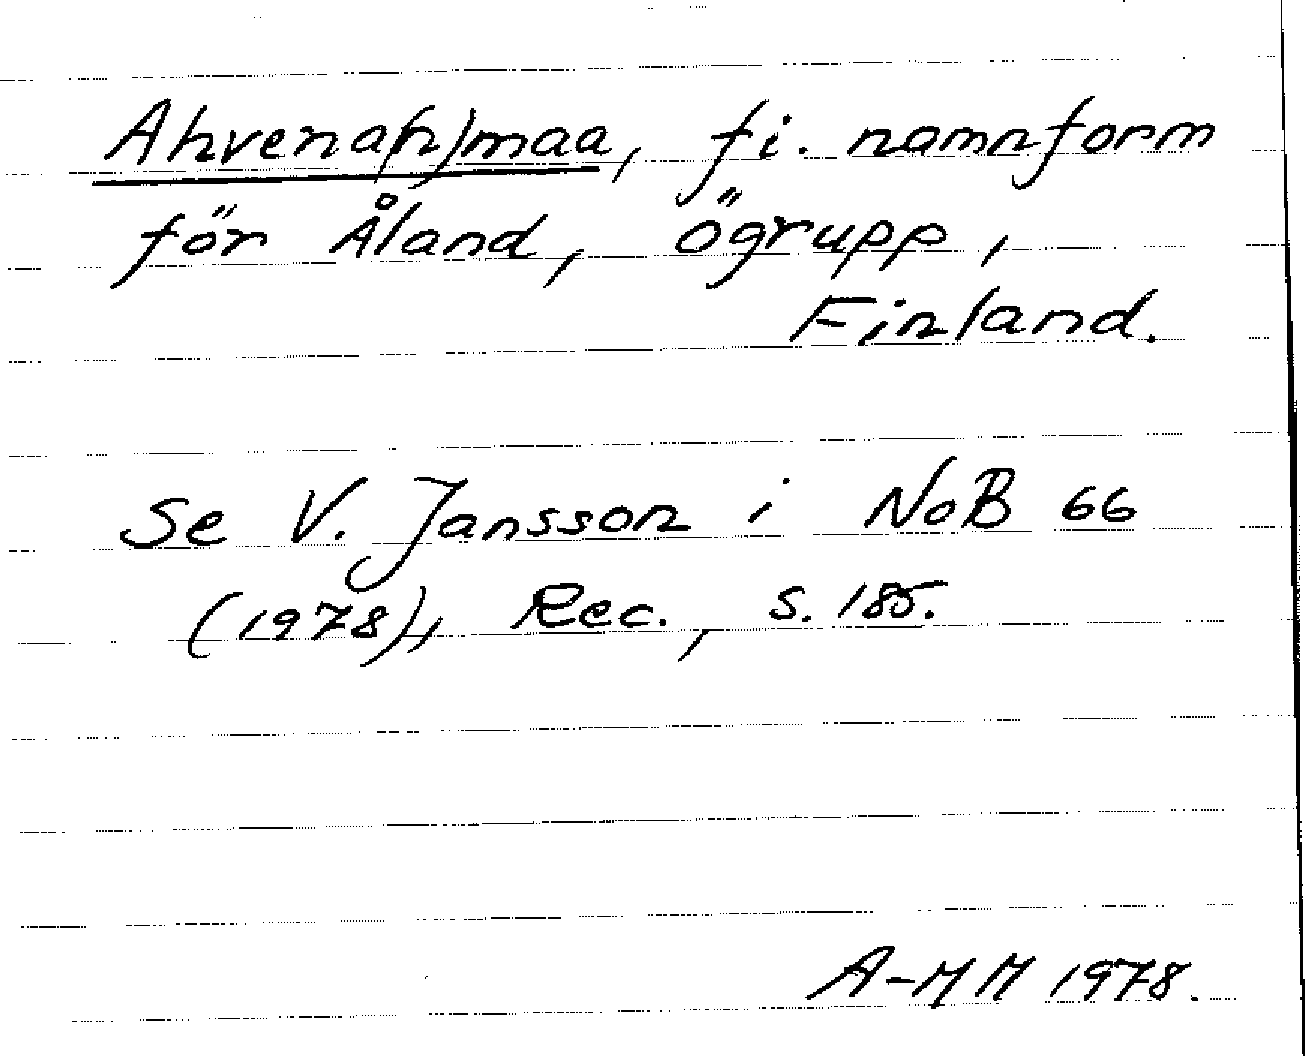 Ahvena(n)maa, fi. namnform
för Åland, ögrupp,
Finland.
Se V. Jansson i NoB 66
(1978), Rec., s. 185.
A-MM 1978.